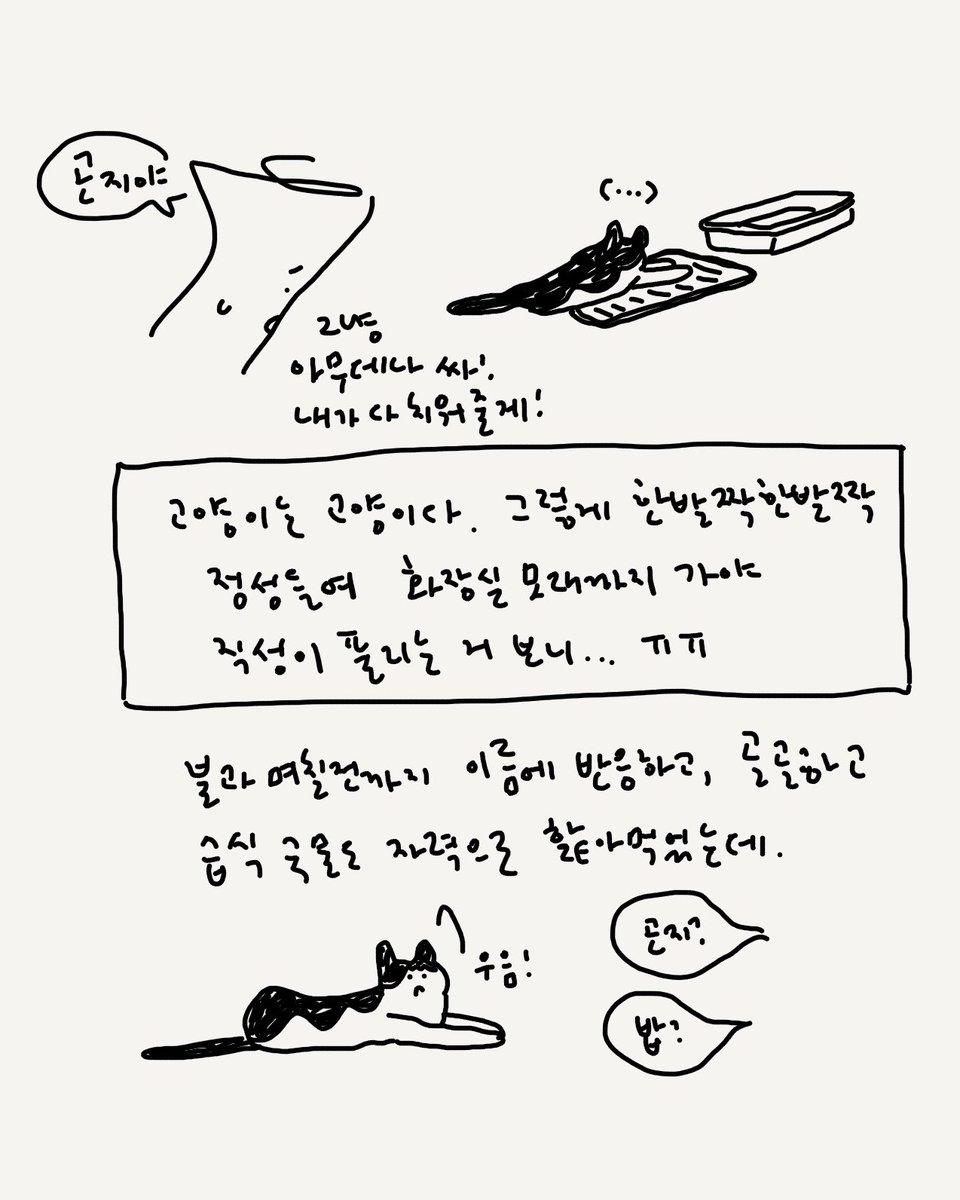 곤지야
(...)
그냥
아무데나 싸!
내가 다 치워줄게!
고양이는 고양이다. 그렇게 한발짝한발짝
정성들여 화장실 모래까지 가야
직성이 풀리는 거 보니... ㅠㅠ
불과 며칠전까지 이름에 반응하고, 골골하고
습식 국물도 자력으로 핥아먹었는데.
우음!
곤지?
밥?